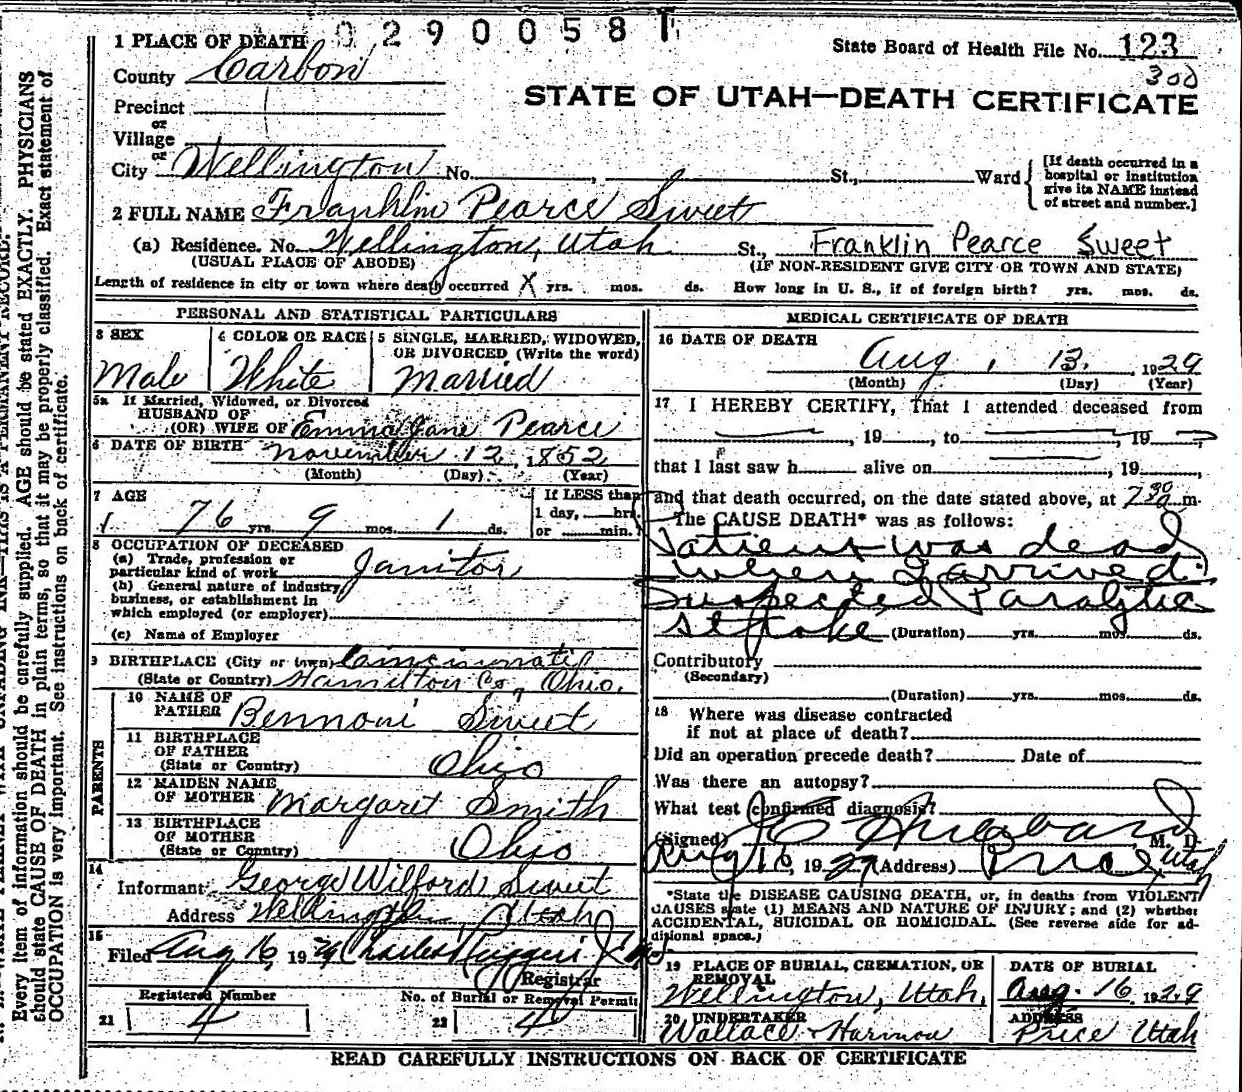 0 2 9 0 0 5 8 1
1 PLACE OF DEATH
State Board of Health File No. 123
300
County Carbon
STATE OF UTAH—DEATH CERTIFICATE
Precinct
or
Village
or
City Wellington No. , St., Ward
[If death occurred in a
hospital or institution
give its NAME instead
of street and number.]
2 FULL NAME Franklin Pearce Sweet
(a) Residence. No. Wellington, Utah St., Franklin Pearce Sweet
(USUAL PLACE OF ABODE) (IF NON-RESIDENT GIVE CITY OR TOWN AND STATE)
Length of residence in city or town where death occurred X yrs. mos. ds. How long in U. S., if of foreign birth? yrs. mos. ds.
PERSONAL AND STATISTICAL PARTICULARS
3 SEX
Male
4 COLOR OR RACE
White
5 SINGLE, MARRIED, WIDOWED,
OR DIVORCED (Write the word)
Married
5a If Married, Widowed, or Divorced
HUSBAND OF
(OR) WIFE OF Emma Jane Pearce
6 DATE OF BIRTH November 12, 1852
(Month) (Day) (Year)
7 AGE
76 yrs. 9 mos. 1 ds.
If LESS than
1 day, hrs.
or min.
8 OCCUPATION OF DECEASED
(a) Trade, profession or
particular kind of work Janitor
(b) General nature of industry
business, or establishment in
which employed (or employer)
(c) Name of Employer
9 BIRTHPLACE (City or town) Cincinnati
(State or Country) Hamilton Co., Ohio.
PARENTS
10 NAME OF
FATHER Bennoni Sweet
11 BIRTHPLACE
OF FATHER
(State or Country) Ohio
12 MAIDEN NAME
OF MOTHER Margaret Smith
13 BIRTHPLACE
OF MOTHER
(State or Country) Ohio
14
Informant George Wilford Sweet
Address Wellington Utah
15
Filed Aug 16, 1929 Charles Ruggeri
Registrar
Registered Number
21 4
No. of Burial or Removal Permit
22 4
MEDICAL CERTIFICATE OF DEATH
16 DATE OF DEATH
Aug, 13, 1929
(Month) (Day) (Year)
17 I HEREBY CERTIFY, That I attended deceased from
, 19 , to , 19 ,
that I last saw h alive on , 19 ,
and that death occurred, on the date stated above, at 7 30 a m.
The CAUSE DEATH* was as follows:
Patient was dead
when I arrived.
Suspected Paralytic
stroke (Duration) yrs. mos. ds.
Contributory
(Secondary)
(Duration) yrs. mos. ds.
18 Where was disease contracted
if not at place of death?
Did an operation precede death? Date of
Was there an autopsy?
What test confirmed diagnosis?
(Signed) M. D.
Aug 16, 1929 (Address) Price, Utah
*State the DISEASE CAUSING DEATH, or, in deaths from VIOLENT
CAUSES state (1) MEANS AND NATURE OF INJURY; and (2) whether
ACCIDENTAL, SUICIDAL OR HOMICIDAL. (See reverse side for ad-
ditional space.)
19 PLACE OF BURIAL, CREMATION, OR
REMOVAL
Wellington, Utah,
DATE OF BURIAL
Aug. 16, 1929
20 UNDERTAKER
Wallace & Harmon
ADDRESS
Price Utah
READ CAREFULLY INSTRUCTIONS ON BACK OF CERTIFICATE
Every item of information should be carefully supplied. AGE should be stated EXACTLY. PHYSICIANS
should state CAUSE OF DEATH in plain terms, so that it may be properly classified. Exact statement of
OCCUPATION is very important. See instructions on back of certificate.